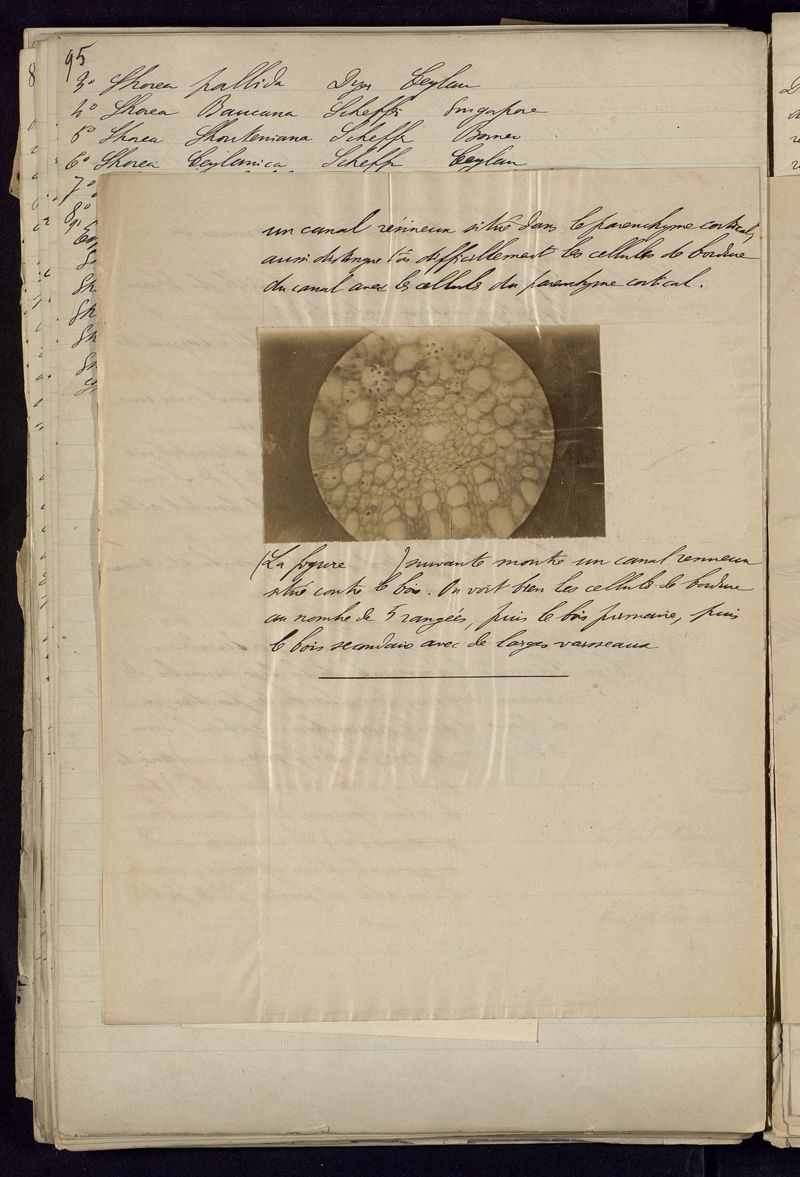 95
3° Shorea pallida Dyer Ceylan
4° Shorea Bancana Scheff. Singapore
5° Shorea Shouteniana Scheff Borneo
6° Shorea Ceylanica Scheff Ceylan
7°
8°
9°
un canal résineux situé dans le parenchyme cortical,
aussi distingue t'on difficilement les cellules de bordure
du canal avec les cellules du parenchyme cortical.
(La figure ) suivante montre un canal résineux
situé contre le bois. On voit bien les cellules de bordure
au nombre de 5 rangées, puis le bois primaire, puis
le bois secondaire avec de larges vaisseaux